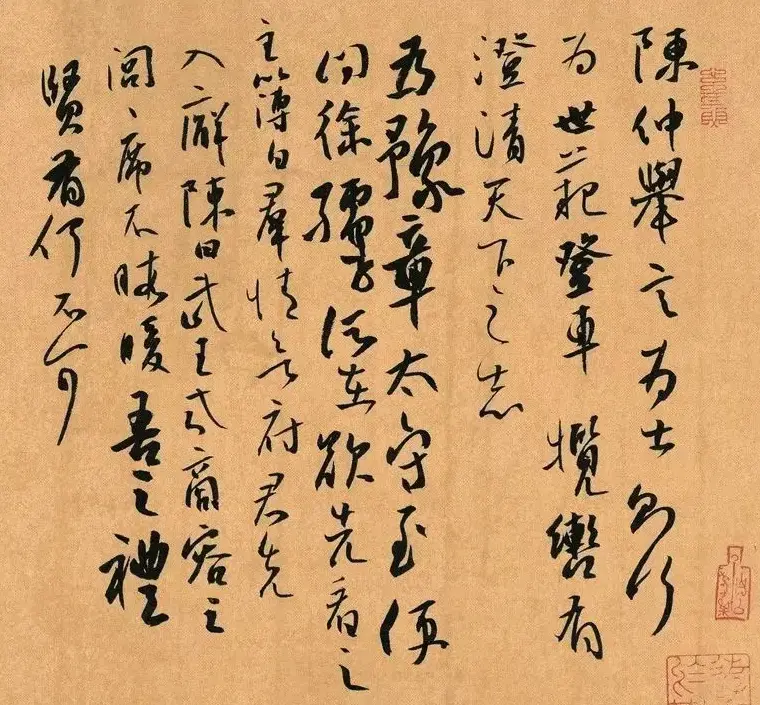 陳仲舉言為士則行
為世範登車攬轡有
澄清天下之志
為豫章太守至便
問徐孺子所在欲先看之
主簿白羣情欲府君先
入廨陳曰武王式商容之
閭席不暇暖吾之禮
賢有何不可